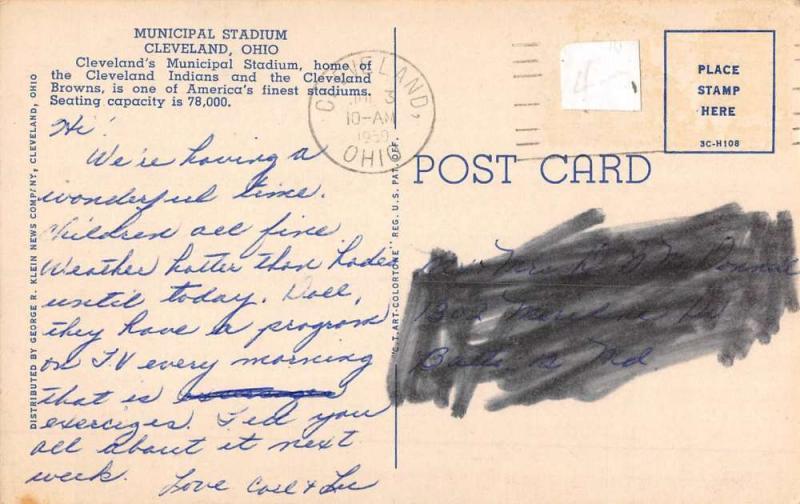 MUNICIPAL STADIUM
CLEVELAND, OHIO
Cleveland's Municipal Stadium, home of
the Cleveland Indians and the Cleveland
Browns, is one of America's finest stadiums.
Seating capacity is 78,000.
Hi!
We're having a
wonderful time.
Children all fine.
Weather hotter than hades
until today. Doll,
they have a program
on T.V every morning
that is
exercises. Tell you
all about it next
week.
Love & Lu
DISTRIBUTED BY GEORGE R. KLEIN NEWS COMP/NY, CLEVELAND, OHIO
C.T. ART-COLORTONE REG. U.S. PAT. OFF.
CLEVELAND,
3
10-AM
1959
OHIO
4
PLACE
STAMP
HERE
3C-H108
POST CARD
Mrs
Md.